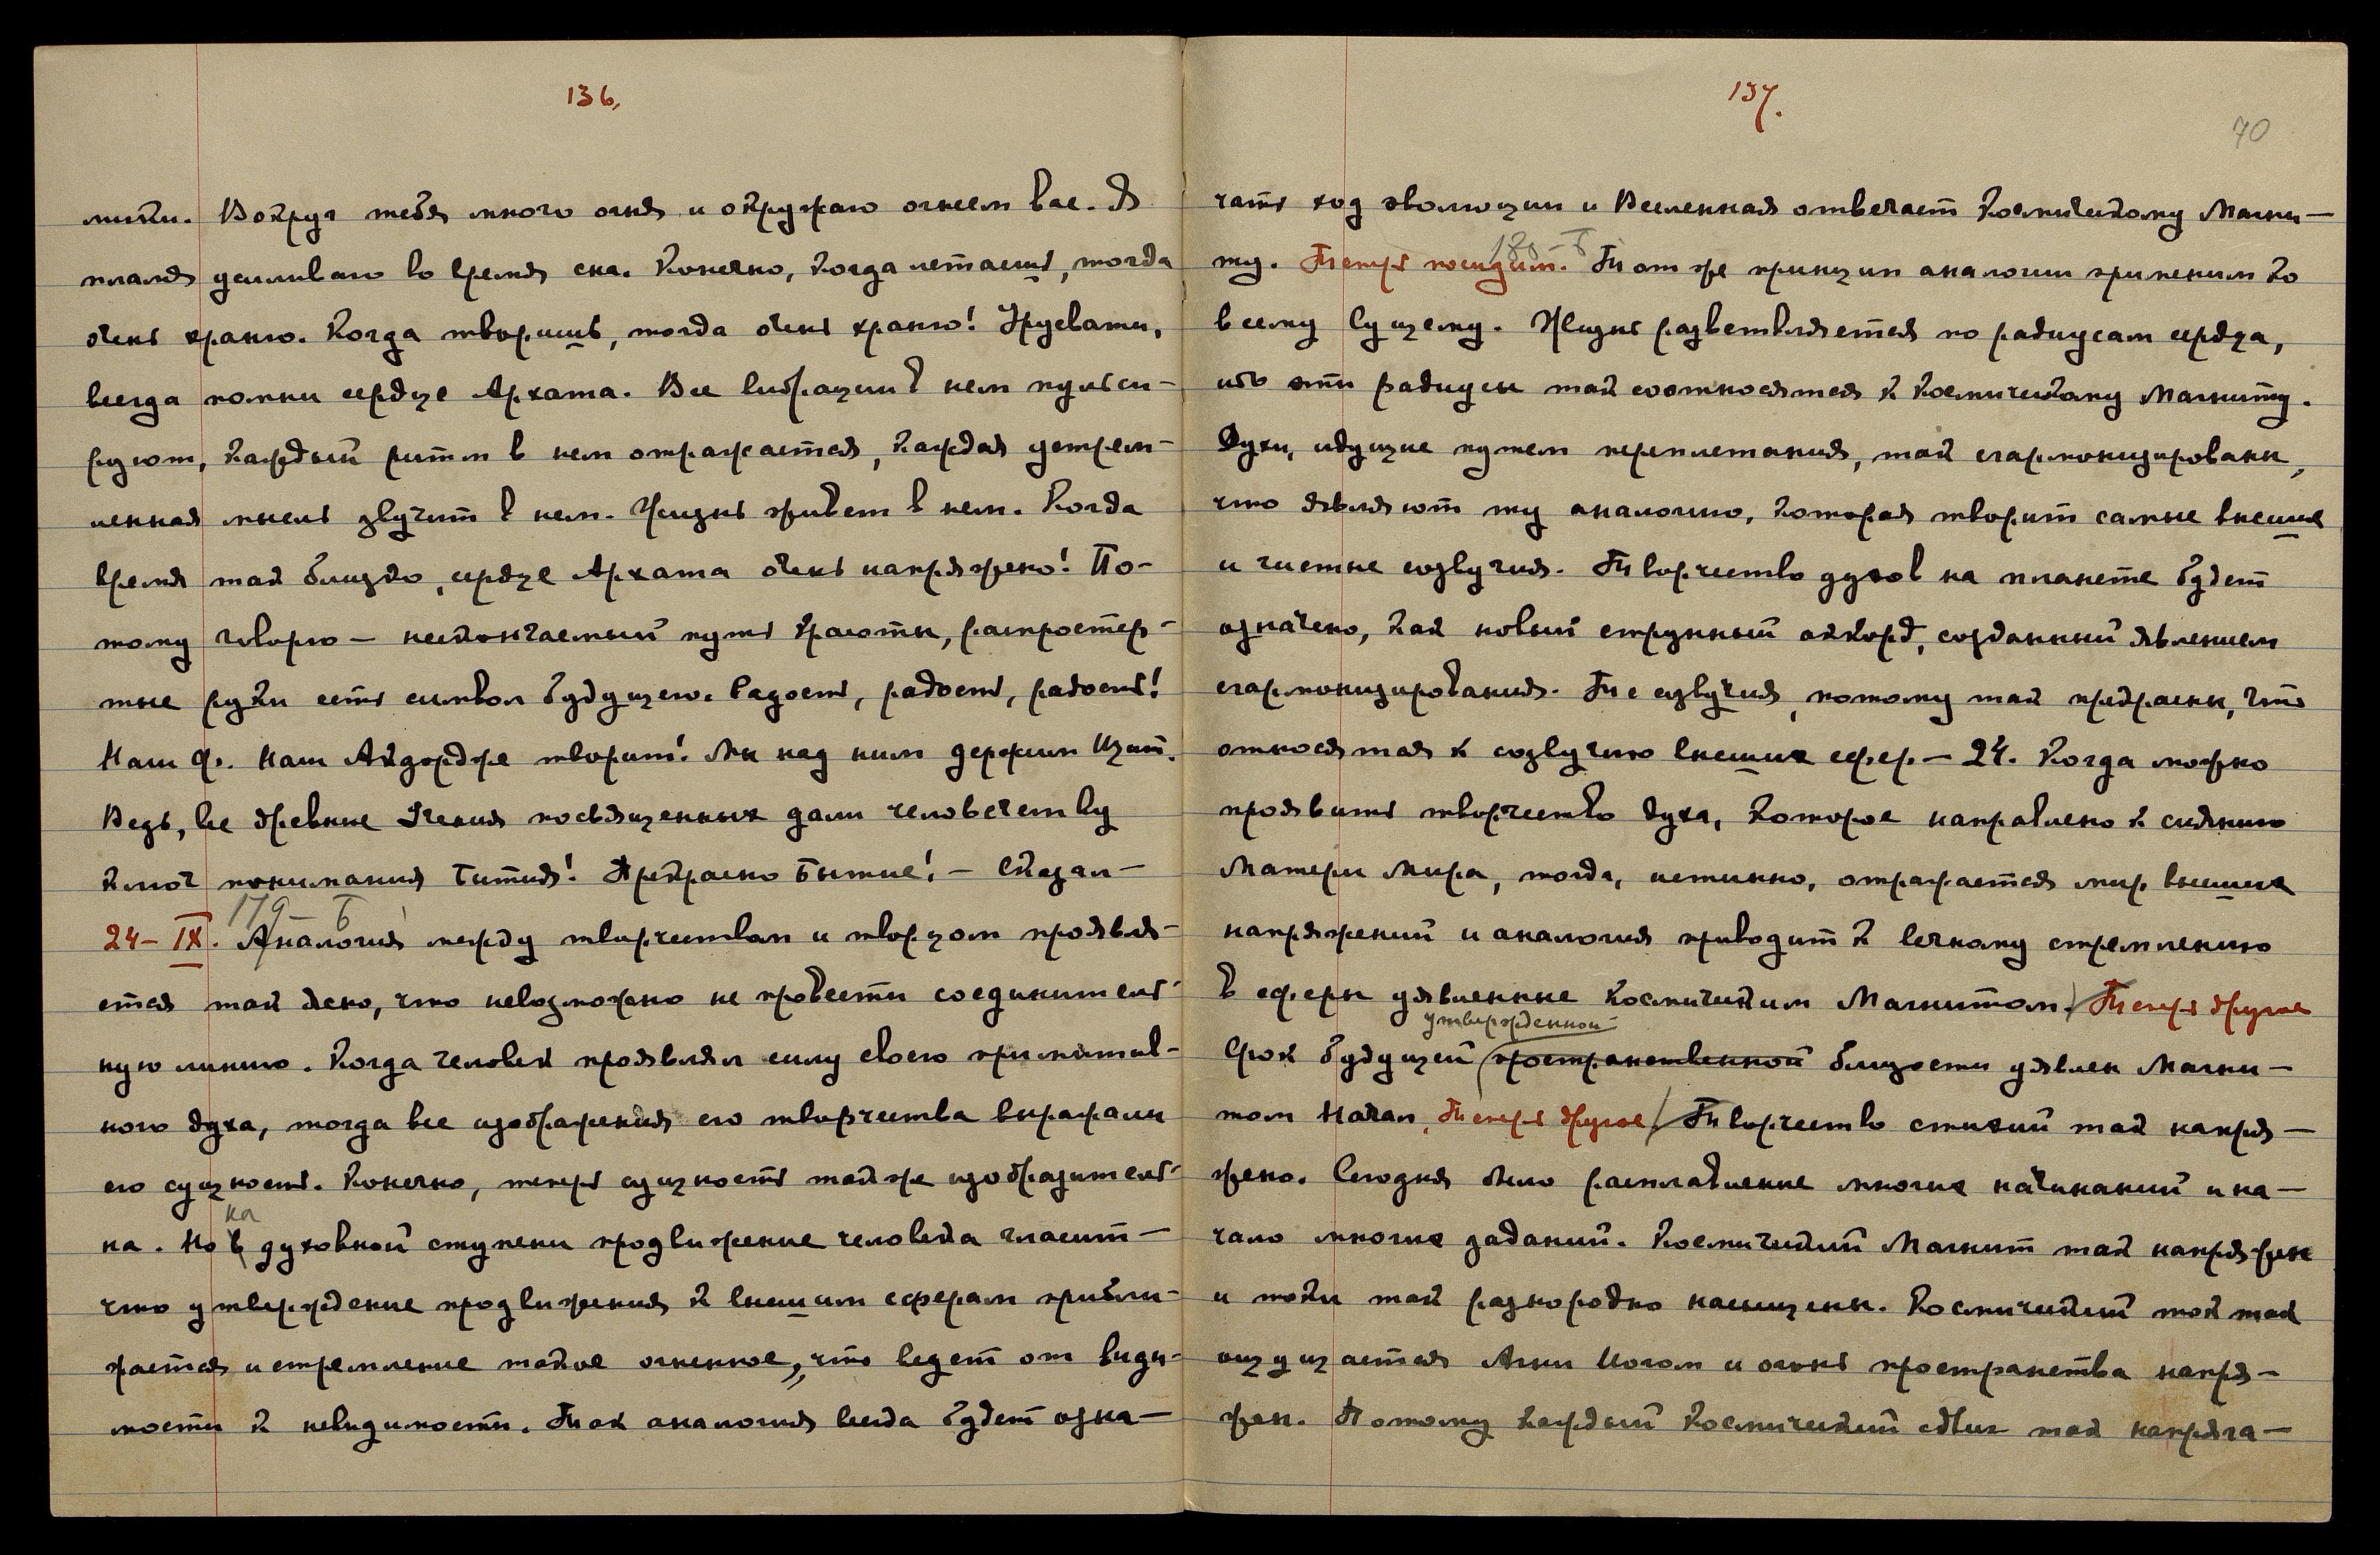 136.
мики. Вокруг тебя много огня и окружаю огнем вас. Я
пламя усиливаю во время сна. Конечно, когда летаешь, тогда
очень храню. Когда творишь, тогда очень храню! Урусвати,
всегда помни сердце Архата. Все вибрации в нем пульси-
руют, каждый ритм в нем отражается, каждая устрем-
ленная мысль звучит в нем. Жизнь живет в нем. Когда
время так близко, сердце Архата очень напряжено! По-
тому говорю — нескончаемый путь красоты, распростер-
тые руки есть символ будущего. Радость, радость, радость!
Наш Ф. Наш Акдордже творит! Мы над ним держим Щит.
Ведь, все древние Учения посвященных дали человечеству
ключ понимания Бытия! Прекрасно Бытие! — Сказал —
179 – Б
24 – IX. Аналогия между творчеством и творцом проявля-
ется так ясно, что невозможно не провести соединитель-
ную линию. Когда человек проявлял силу своего примитив-
ного духа, тогда все изображения его творчества выражали
его сущность. Конечно, теперь сущность также изобразитель-
на
на. Но в духовной ступени продвижение человека гласит —
что утверждение продвижения к высшим сферам прибли-
жается и стремление такое огненное, что ведет от види-
мости к невидимости. Так аналогия всегда будет озна-
137.
70
чать ход эволюции и Вселенная отвечает Космическому Магни-
180 – Б
ту. Теперь посидим. Тот же принцип аналогии применим ко
всему Сущему. Жизнь разветвляется по радиусам сердца,
ибо эти радиусы так соотносятся к Космическому Магниту.
Духи, идущие путем переплетания, так сгармонизированы,
что являют ту аналогию, которая творит самые высшие
и чистые созвучия. Творчество духов на планете будет
означено, как новый струнный аккорд, созданный явлением
сгармонизирования. Те созвучия, потому так прекрасны, что
относятся к созвучию высших сфер — 24. Когда можно
проявить творчество духа, которое направлено к сиянию
Матери Мира, тогда, истинно, отражается мир высших
напряжений и аналогия приводит к вечному стремлению
в сферы уявленные Космическим Магнитом. Теперь другое
утвержденной
Срок будущей пространственной близости уявлен Магни-
том Начал, Теперь другое. Творчество стихий так напря-
жено. Сегодня было расплавление многих начинаний и на-
чало многих заданий. Космический Магнит так напряжен
и токи так разнородно насыщены. Космический ток так
ощущается Агни Йогом и огонь пространства напря-
жен. Потому каждый Космический сдвиг так напряга-